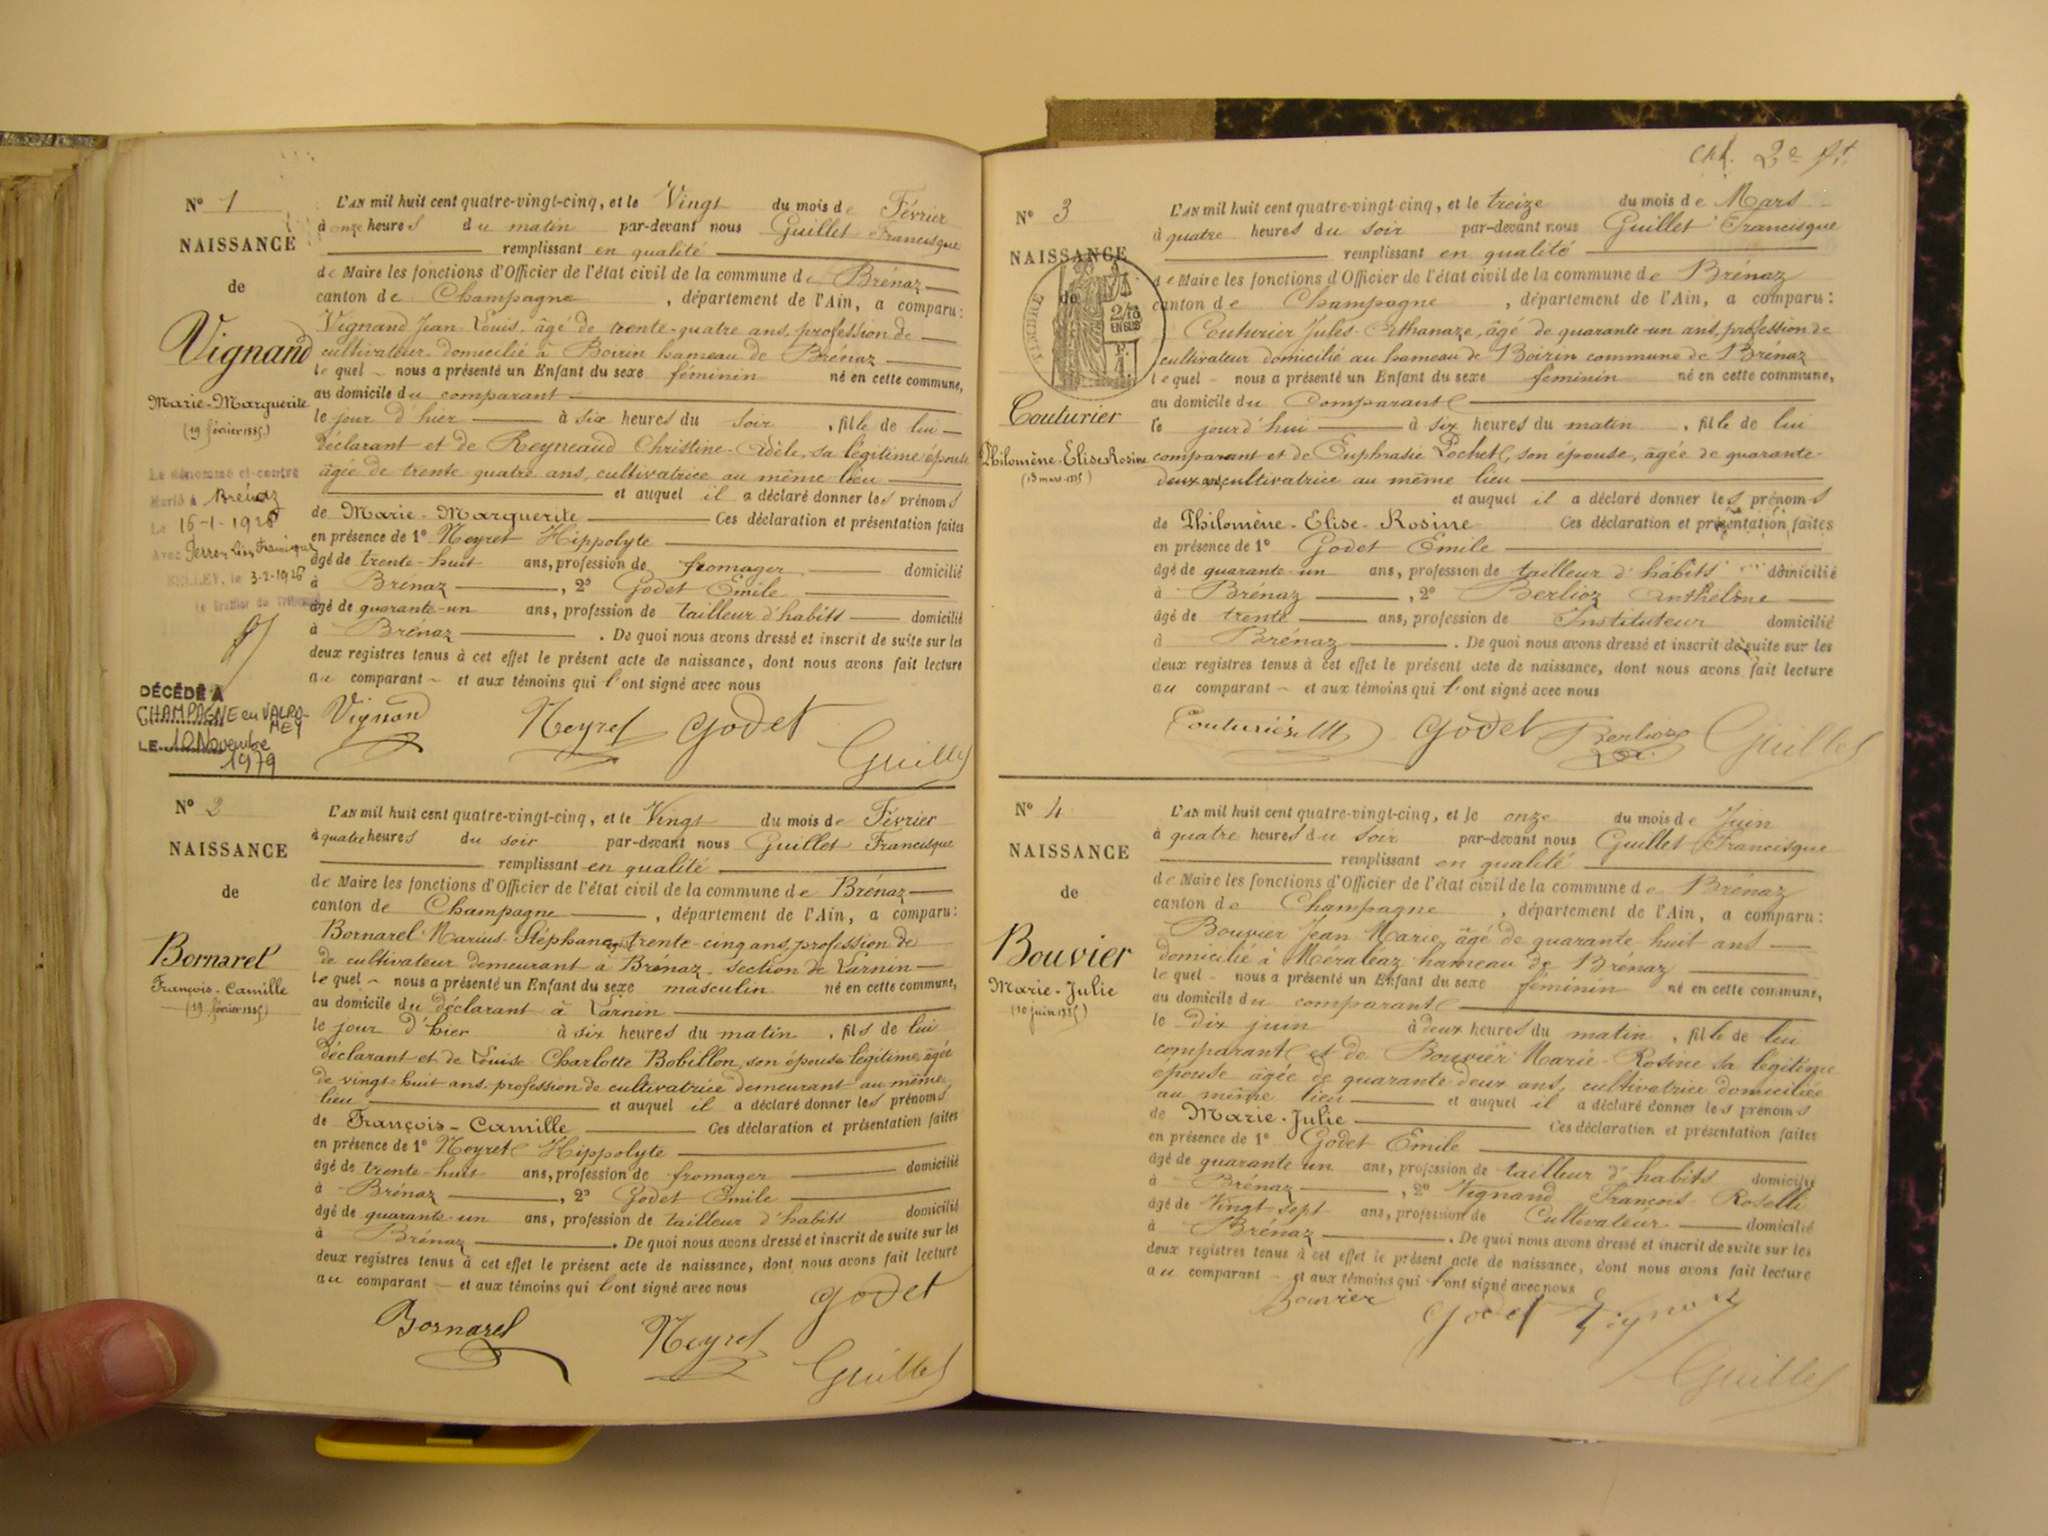 N° 1
NAISSANCE
de
Vignand
Marie-Marguerite
(19 février 1885)
Le dénommé ci-contre
Marié à Brénaz
Le 16-1-1926
Avec
BELLEY, le 3-2-1926
Le Greffier du Tribunal
DÉCÉDÉ A
CHAMPAGNE en VALRO-
MEY
LE 10 Novembre
1979
L'AN mil huit cent quatre-vingt-cinq, et le Vingt du mois de Février
à onze heures du matin par-devant nous Guillet Francisque
remplissant en qualité
de Maire les fonctions d'Officier de l'état civil de la commune de Brénaz
canton de Champagne, département de l'Ain, a comparu:
Vignand Jean Louis, âgé de trente-quatre ans, profession de
cultivateur domicilié à Boirin hameau de Brénaz
lequel nous a présenté un Enfant du sexe féminin né en cette commune,
au domicile du comparant
le jour d'hier à six heures du soir, fille de lui
déclarant et de Reyneaud Christine-Adèle, sa légitime épouse
âgée de trente quatre ans, cultivatrice au même lieu
et auquel il a déclaré donner les prénoms
de Marie-Marguerite Ces déclaration et présentation faites
en présence de 1° Neyret Hippolyte
âgé de trente-huit ans, profession de fromager domicilié
à Brénaz, 2° Godet Emile
âgé de quarante-un ans, profession de tailleur d'habits domicilié
à Brénaz. De quoi nous avons dressé et inscrit de suite sur les
deux registres tenus à cet effet le présent acte de naissance, dont nous avons fait lecture
au comparant et aux témoins qui l'ont signé avec nous
Vignand Neyret Godet
Guillet
N° 2
NAISSANCE
de
Bornarel
François-Camille
(19 février 1885)
L'AN mil huit cent quatre-vingt-cinq, et le Vingt du mois de Février
à quatre heures du soir par-devant nous Guillet Francisque
remplissant en qualité
de Maire les fonctions d'Officier de l'état civil de la commune de Brénaz
canton de Champagne, département de l'Ain, a comparu:
Bornarel Marius-Stéphane, trente-cinq ans, profession de
de cultivateur demeurant à Brénaz section de Larnin
lequel nous a présenté un Enfant du sexe masculin né en cette commune,
au domicile du déclarant à Larnin
le jour d'hier à six heures du matin, fils de lui
déclarant et de Louise Charlotte Bobillon, son épouse légitime, âgée
de vingt-huit ans, profession de cultivatrice demeurant au même
lieu et auquel il a déclaré donner les prénoms
de François-Camille Ces déclaration et présentation faites
en présence de 1° Neyret Hippolyte
âgé de trente-huit ans, profession de fromager domicilié
à Brénaz, 2° Godet Emile
âgé de quarante-un ans, profession de tailleur d'habits domicilié
à Brénaz. De quoi nous avons dressé et inscrit de suite sur les
deux registres tenus à cet effet le présent acte de naissance, dont nous avons fait lecture
au comparant et aux témoins qui l'ont signé avec nous
Godet
Bornarel Neyret
Guillet
2e
N° 3
NAISSANCE
de
TIMBRE
EN SUS
Couturier
Philomène-Elise-Rosine
(13 mars 1885)
L'AN mil huit cent quatre-vingt-cinq, et le treize du mois de Mars
à quatre heures du soir par-devant nous Guillet Francisque
remplissant en qualité
de Maire les fonctions d'Officier de l'état civil de la commune de Brénaz
canton de Champagne, département de l'Ain, a comparu:
Couturier Jules Athanaze, âgé de quarante-un ans, profession de
cultivateur domicilié au hameau de Boirin commune de Brénaz
lequel nous a présenté un Enfant du sexe féminin né en cette commune,
au domicile du Comparant
le jourd'hui à six heures du matin, fille de lui
comparant et de Euphrasie Pochet, son épouse, âgée de quarante-
deux ans cultivatrice au même lieu
et auquel il a déclaré donner les prénoms
de Philomène-Elise-Rosine Ces déclaration et présentation faites
en présence de 1° Godet Emile
âgé de quarante-un ans, profession de tailleur d'habits domicilié
à Brénaz, 2° Berlioz Anthelme
âgé de trente ans, profession de Instituteur domicilié
à Brénaz. De quoi nous avons dressé et inscrit de suite sur les
deux registres tenus à cet effet le présent acte de naissance, dont nous avons fait lecture
au comparant et aux témoins qui l'ont signé avec nous
Godet Berlioz Guillet
N° 4
NAISSANCE
de
Bouvier
Marie-Julie
(10 juin 1885)
L'AN mil huit cent quatre-vingt-cinq, et le onze du mois de Juin
à quatre heures du soir par-devant nous Guillet Francisque
remplissant en qualité
de Maire les fonctions d'Officier de l'état civil de la commune de Brénaz
canton de Champagne, département de l'Ain, a comparu:
Bouvier Jean Marie, âgé de quarante huit ans
domicilié à Méraleaz hameau de Brénaz
lequel nous a présenté un Enfant du sexe féminin né en cette commune,
au domicile du comparant
le dix juin à deux heures du matin, fille de lui
comparant et de Bouvier Marie-Rosine sa légitime
épouse âgée de quarante deux ans, cultivatrice domiciliée
au même lieu et auquel il a déclaré donner les prénoms
de Marie-Julie Ces déclaration et présentation faites
en présence de 1° Godet Emile
âgé de quarante un ans, profession de tailleur d'habits domicilié
à Brénaz, 2° Vignand François Roselli
âgé de Vingt-sept ans, profession de Cultivateur domicilié
à Brénaz. De quoi nous avons dressé et inscrit de suite sur les
deux registres tenus à cet effet le présent acte de naissance, dont nous avons fait lecture
au comparant et aux témoins qui l'ont signé avec nous
Bouvier Godet Vignand
Guillet